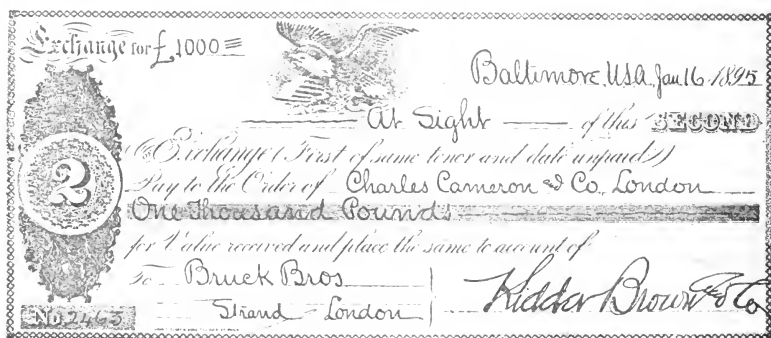 Exchange for £1000
Baltimore, USA. Jan 16 1895
At Sight of this SECOND
of Exchange (First of same tenor and date unpaid)
Pay to the Order of Charles Cameron & Co, London
One Thousand Pounds
for Value received and place the same to account of
To Bruck Bros
Strand - London
Kidder Brown & Co
2
No 2463